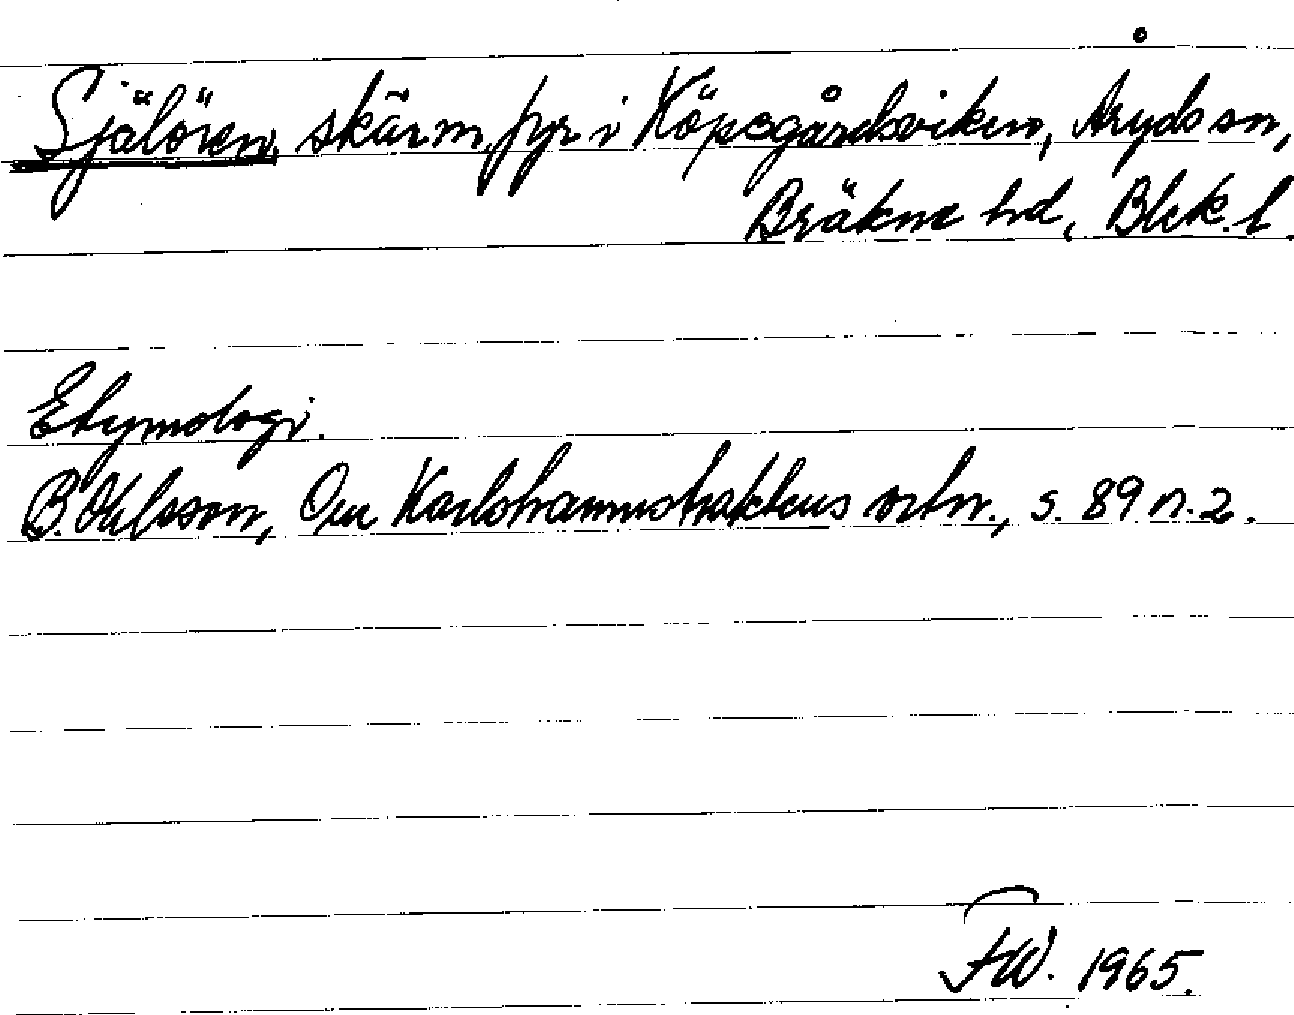 Själören, skär m. fyr i Köpegårdsviken, Åryds sn,
Bräkne hd, Blek. l.
Etymologi.
B. Ohlsson, Om Karlshamnstraktens ortn., s. 89 n. 2.
FW. 1965.